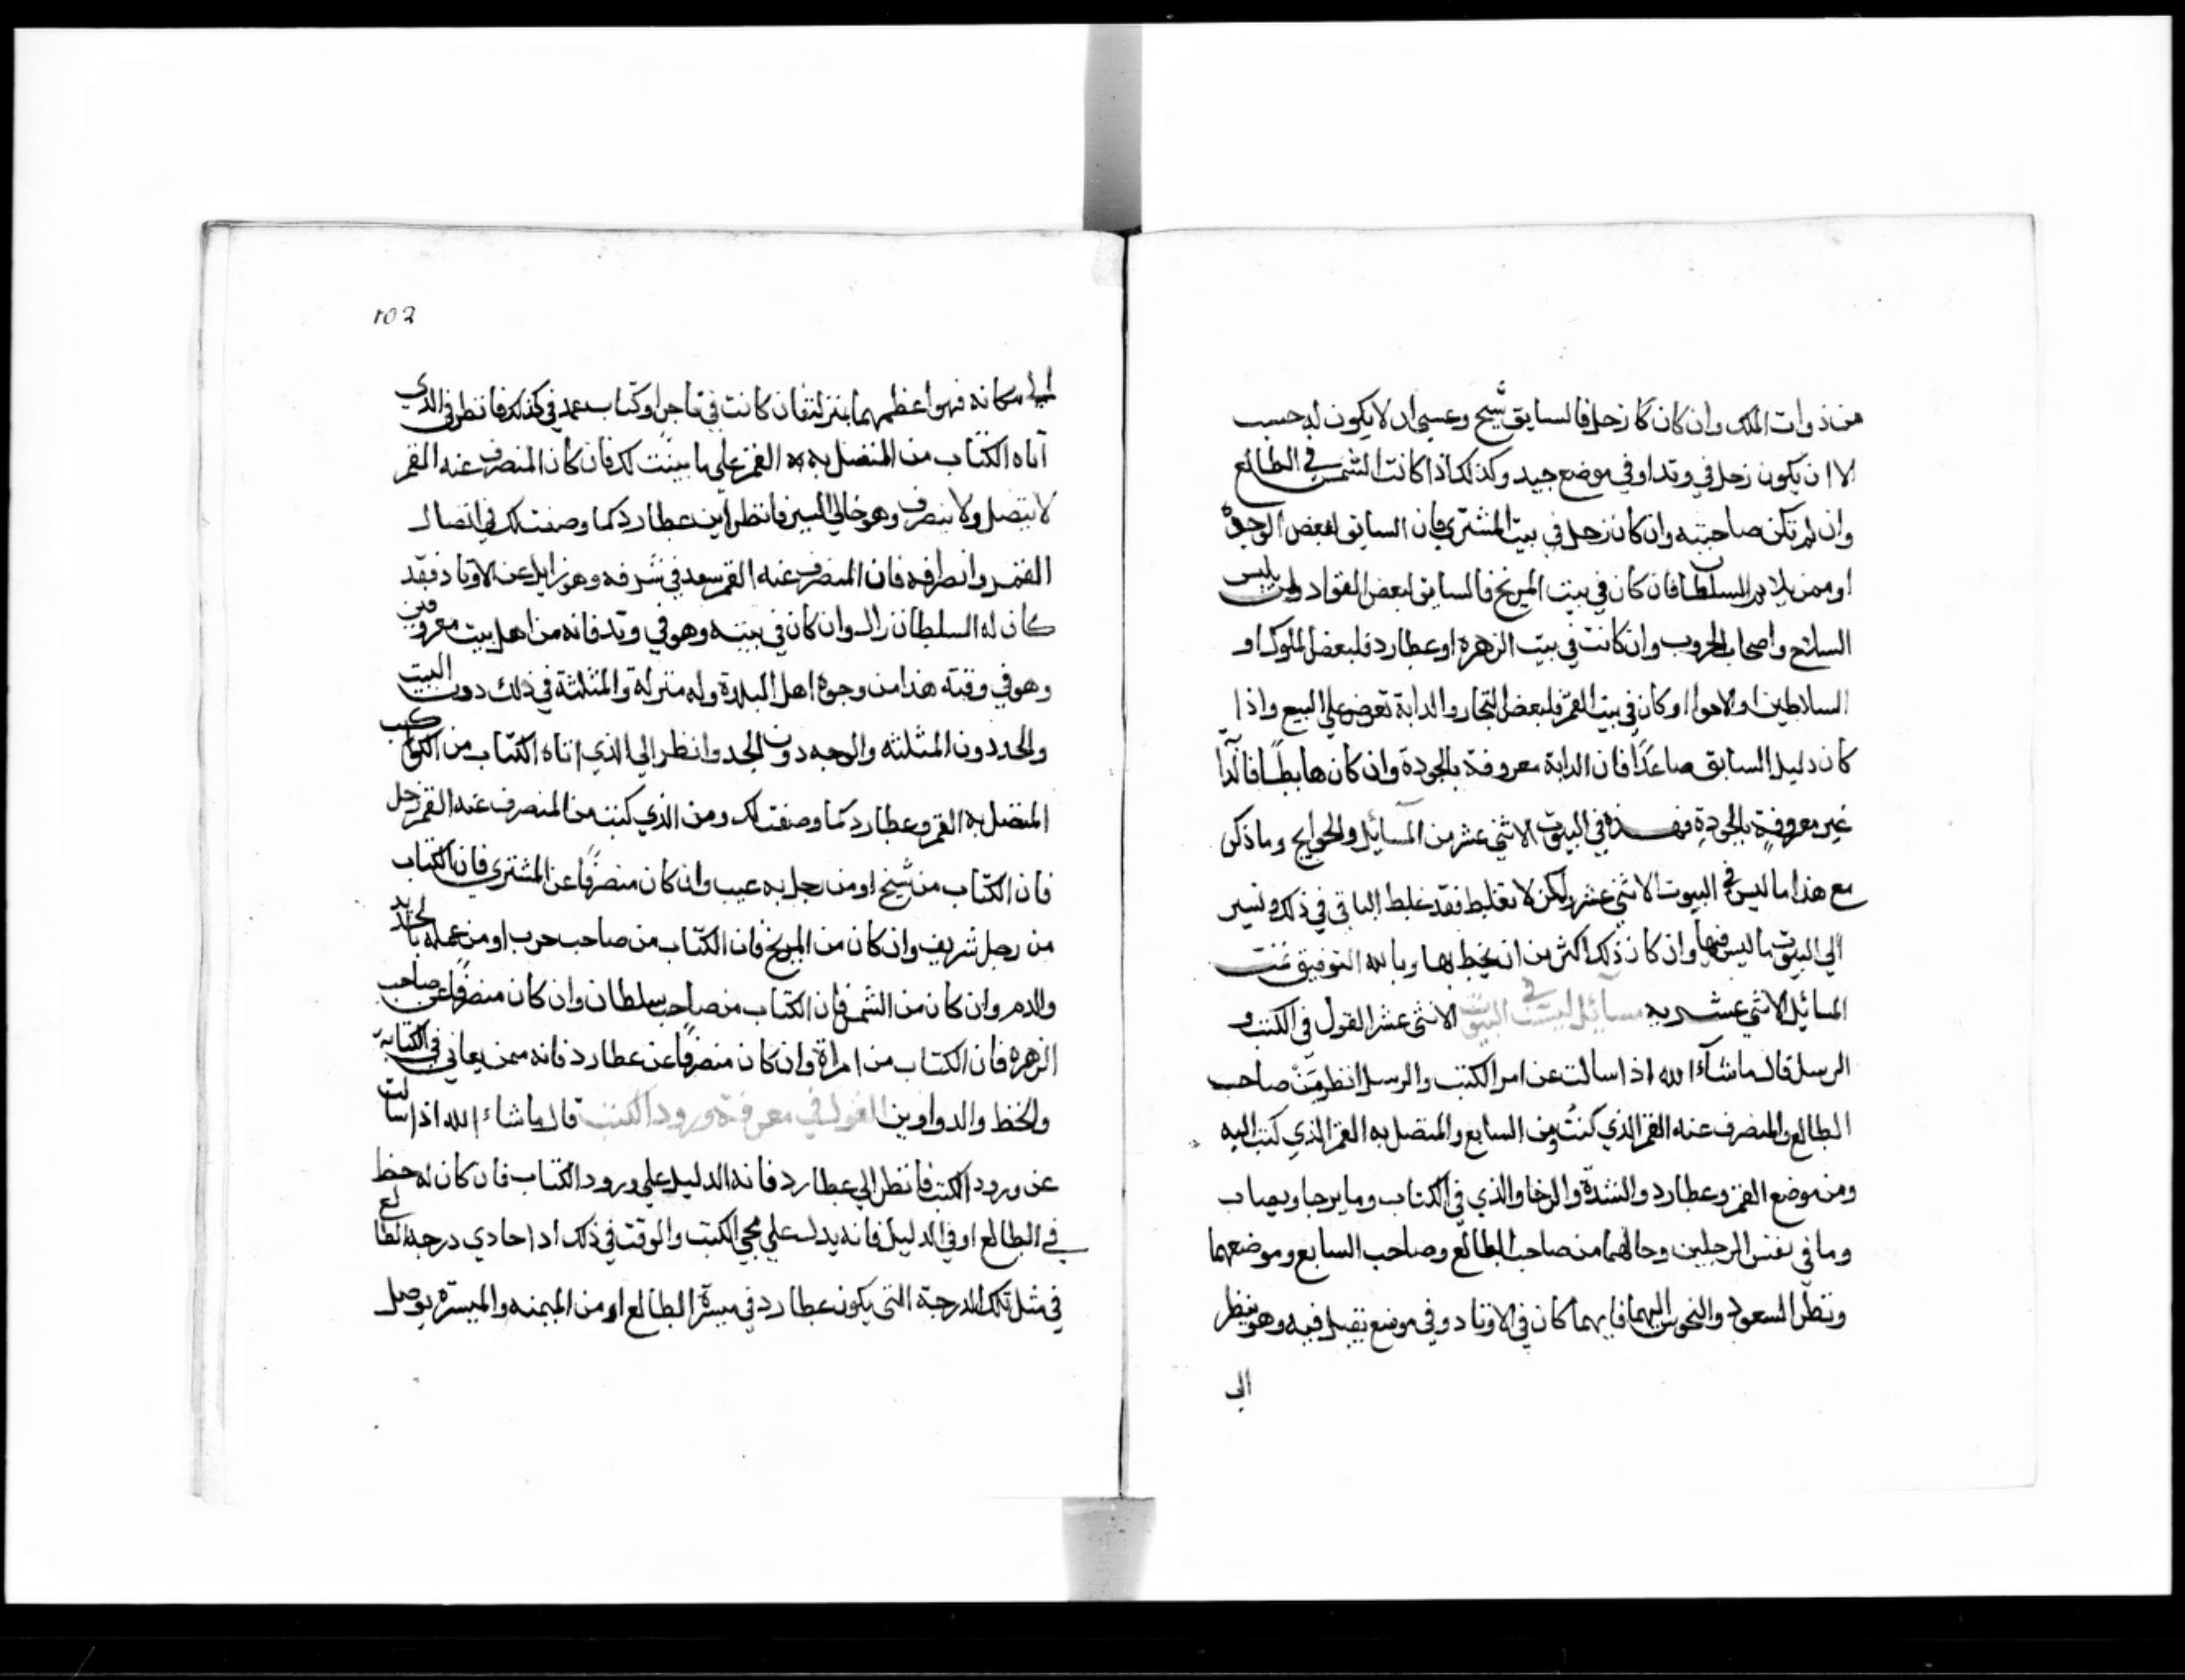 من ذوات الملك وان كان كا زحل فالسابق شيخ وعسى ان لا يكون له حسب
الا ان يكون زحل في وتد او في موضع جيد وكذلك اذا كانت الشمس في الطالع
وان لم تكن صاحبته وان كان زحل في بيت المشتري فان السابق لبعض الوجوة
او ممن يلا السلطان فان كان في بيت المريخ فالسابق لبعض القواد ولمن يلبس
السلاح واصحاب الحروب وان كانت في بيت الزهرة او عطارد فلبعض الملوك او
السلاطين او كان في بيت القمر فلبعض التجار والدابة تعرض علي البيع واذا
كان دليل السابق صاعدًا فان الدابة معروفة بالجودة وان كان هابطًا فانها
غير معروفةٍ بالجودةِ فهذه في البيوت الاثني عشر من المسآئل والحوايج وما ذكر
مع هذا ما ليس في البيوت الاثني عشر ولكن لا تغلط فقد غلط الباقي في ذلك ونسير
الي البيوت ما ليس فيها وان كان ذلك اكثر من ان يحيط بها وبالله التوفيق تمت
المسائل الاثني عشريه مسآئل ليست في البيوت الاثني عشر القول في الكتب و
الرسل قال ماشآء الله اذا سالت عن امر الكتب والرسل انظر من صاحب
الطالع والمنصرف عنه القمر الذي كتب ومن السابع والمتصل به القمر الذي كتب اليه
ومن موضع القمر وعطارد والشدة والرخا والذي في الكتاب وما يرجا ويهاب
وما في نفس الرجلين وحالهما من صاحب الطالع وصاحب السابع وموضعهما
ونظر السعود والنحوس اليهما فايهما كان في الاوتاد وفي موضع يقبل فيه وهو ينظر
الي
102
الي مكانه فهو اعظمهما بمنزلة فان كانت في تاجر او كتاب عمد في كذلك فانظر في الذي
اتاه الكتاب من المتصل به القمر علي ما بينت لك فان كان المنصرف عنه القمر
لا يتصل ولا ينصرف وهو خالي السير فانظر اين عطارد كما وصفت لك في اتصال
القمر وانصرافه فان المنصرف عنه القمر سعد في شرفه وهو زايل عن الاوتاد فقد
كان له السلطان زال وان كان في بيته وهو في وتد فانه من اهل بيت معروفين
وهو في وقته هذا من وجوة اهل البلدة وله منزلة والمثلثة في ذلك دون البيت
والحد دون المثلثه والوجه دون الحد وانظر الي الذي اتاه الكتاب من الكوكب
المتصل به القمر وعطارد كما وصفت لك ومن الذي كتب من المنصرف عنه القمر زحل
فان الكتاب من شيخ او من رجل به عيب وان كان منصرفًا عن المشتري فان الكتاب
من رجل شريف وان كان من المريخ فان الكتاب من صاحب حرب او من عمله بالحديد
والدم وان كان من الشمس فان الكتاب من صاحب سلطان وان كان منصرفًا عن صاحب
الزهره فان الكتاب من امراة وان كان منصرفًا عن عطارد فانه ممن يعاني في الكتابة
والخط والدواوين القول في معرفة ورود الكتب قال ماشاء الله اذا سالت
عن ورود الكتب فانظر الي عطارد فانه الدليل علي ورود الكتاب فان كان له حظ
في الطالع او في الدليل فانه يدل علي مجي الكتب والوقت في ذلك اذا حادي درجة الطالع
في مثل تلك الدرجة التي يكون عطارد في ميسرة الطالع او من الميمنه والميسره يوصل